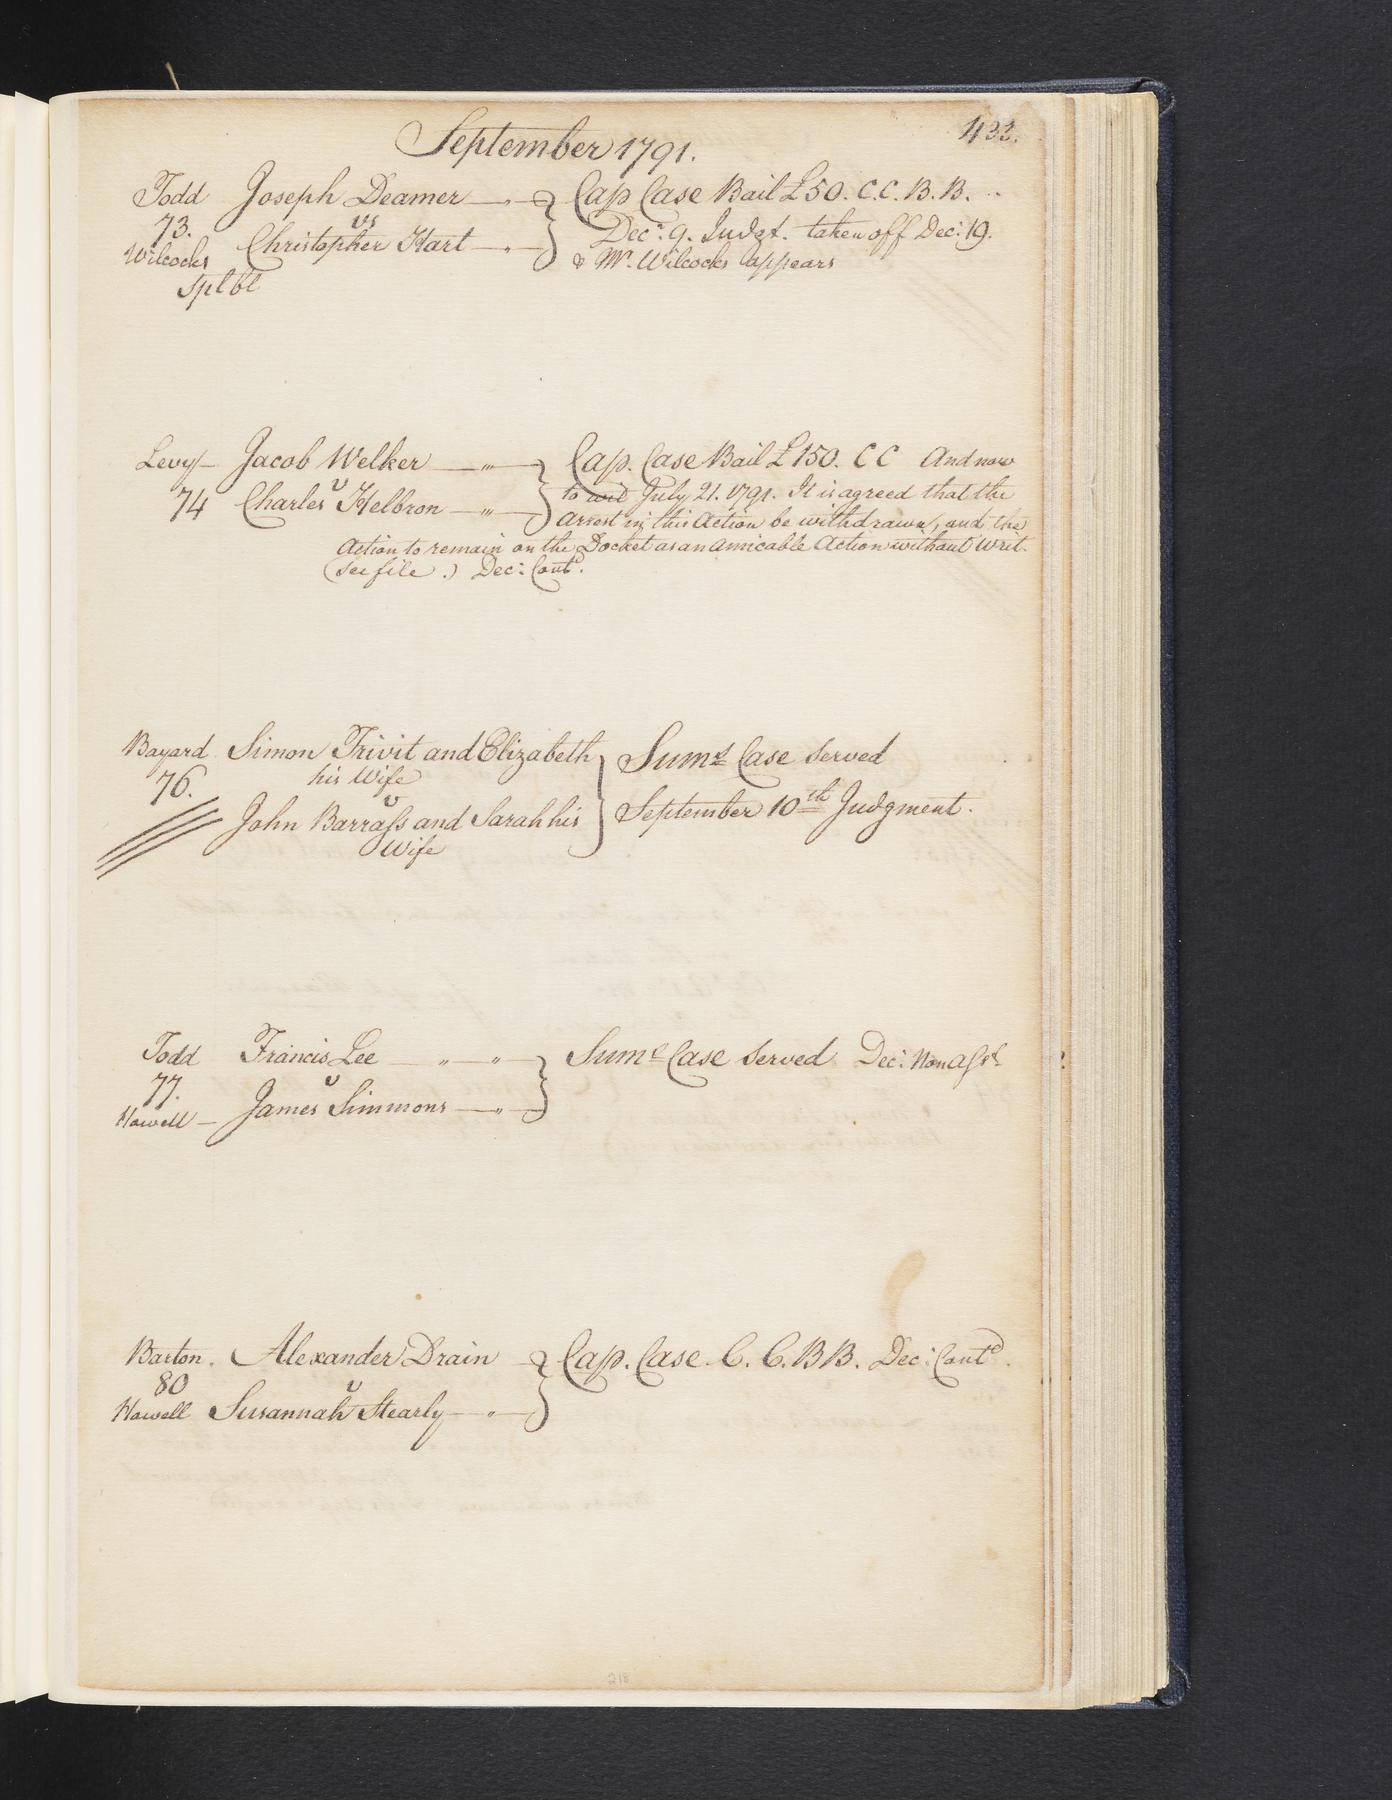 433.
September 1791.
Todd Joseph Deamer Cap Case Bail £50. C.C. B.B.
73. vs
Wilcocks Christopher Hart Decr. 9. Judgt. taken off Dec: 19.
Spl bl & Mr. Wilcocks appears
Levy Jacob Welker Cap. Case Bail £150. CC And now
74 v Charles Helbron to wit July 21. 1791. It is agreed that the
arrest in this Action be withdrawn, and the
Action to remain on the Docket as an amicable Action without Writ.
(See file.) Dec: Contd.
Bayard Simon Trivit and Elizabeth Sums Case Served
76. his Wife
v
John Barrass and Sarah his September 10th Judgment.
Wife
Todd Francis Lee Sums Case Served Dec: Non Asst
77. v
Howell James Simmons
Barton. Alexander Drain Cap. Case C. C. B B. Dec: Contd.
80 v
Howell Susannah Stearly
218